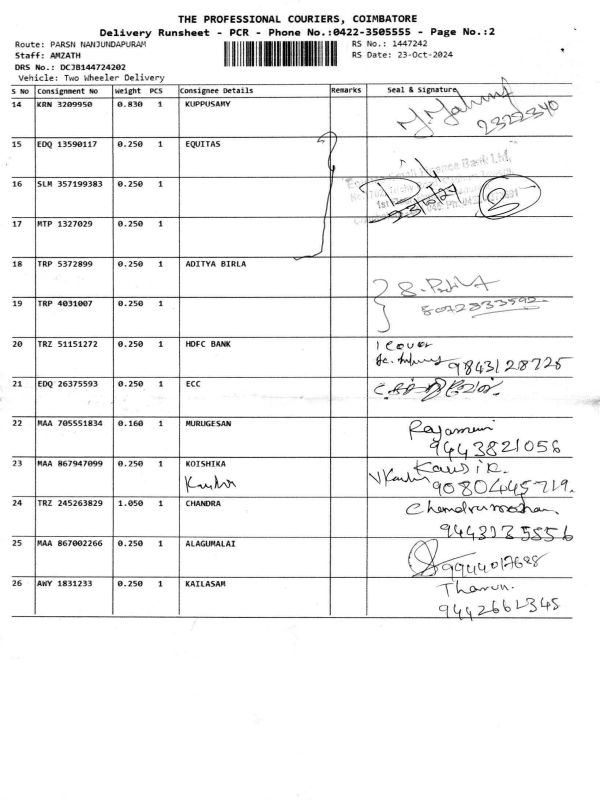 THE PROFESSIONAL COURIERS, COIMBATORE
Delivery Runsheet - PCR - Phone No.:0422-3505555 - Page No.:2
Route: PARSN NANJUNDAPURAM RS No.: 1447242
Staff: AMZATH RS Date: 23-Oct-2024
DRS No.: DCJB144724202
Vehicle: Two Wheeler Delivery
S No Consignment No Weight PCS Consignee Details Remarks Seal & Signature
14 KRN 3209950 0.830 1 KUPPUSAMY
2322340
15 EDQ 13590117 0.250 1 EQUITAS
Finance Bank Ltd.
16 SLM 357199383 0.250 1
2
17 MTP 1327029 0.250 1
18 TRP 5372899 0.250 1 ADITYA BIRLA
19 TRP 4031007 0.250 1
20 TRZ 51151272 0.250 1 HDFC BANK 1 cover
9843128725
21 EDQ 26375593 0.250 1 ECC
22 MAA 705551834 0.160 1 MURUGESAN
9443821056
23 MAA 867947099 0.250 1 KOISHIKA Kausik.
9080445719.
24 TRZ 245263829 1.050 1 CHANDRA Chandramohan
9443135556
25 MAA 867002266 0.250 1 ALAGUMALAI
9944017628
26 AWY 1831233 0.250 1 KAILASAM Tharun.
9442662345